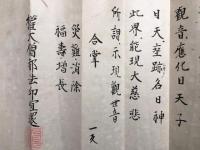 觀音應化日天子
日天垂跡名日神
此界能現大慈悲
所謂示現觀世音
合掌
一文
災難消除
福壽增長
權大僧都法印宣